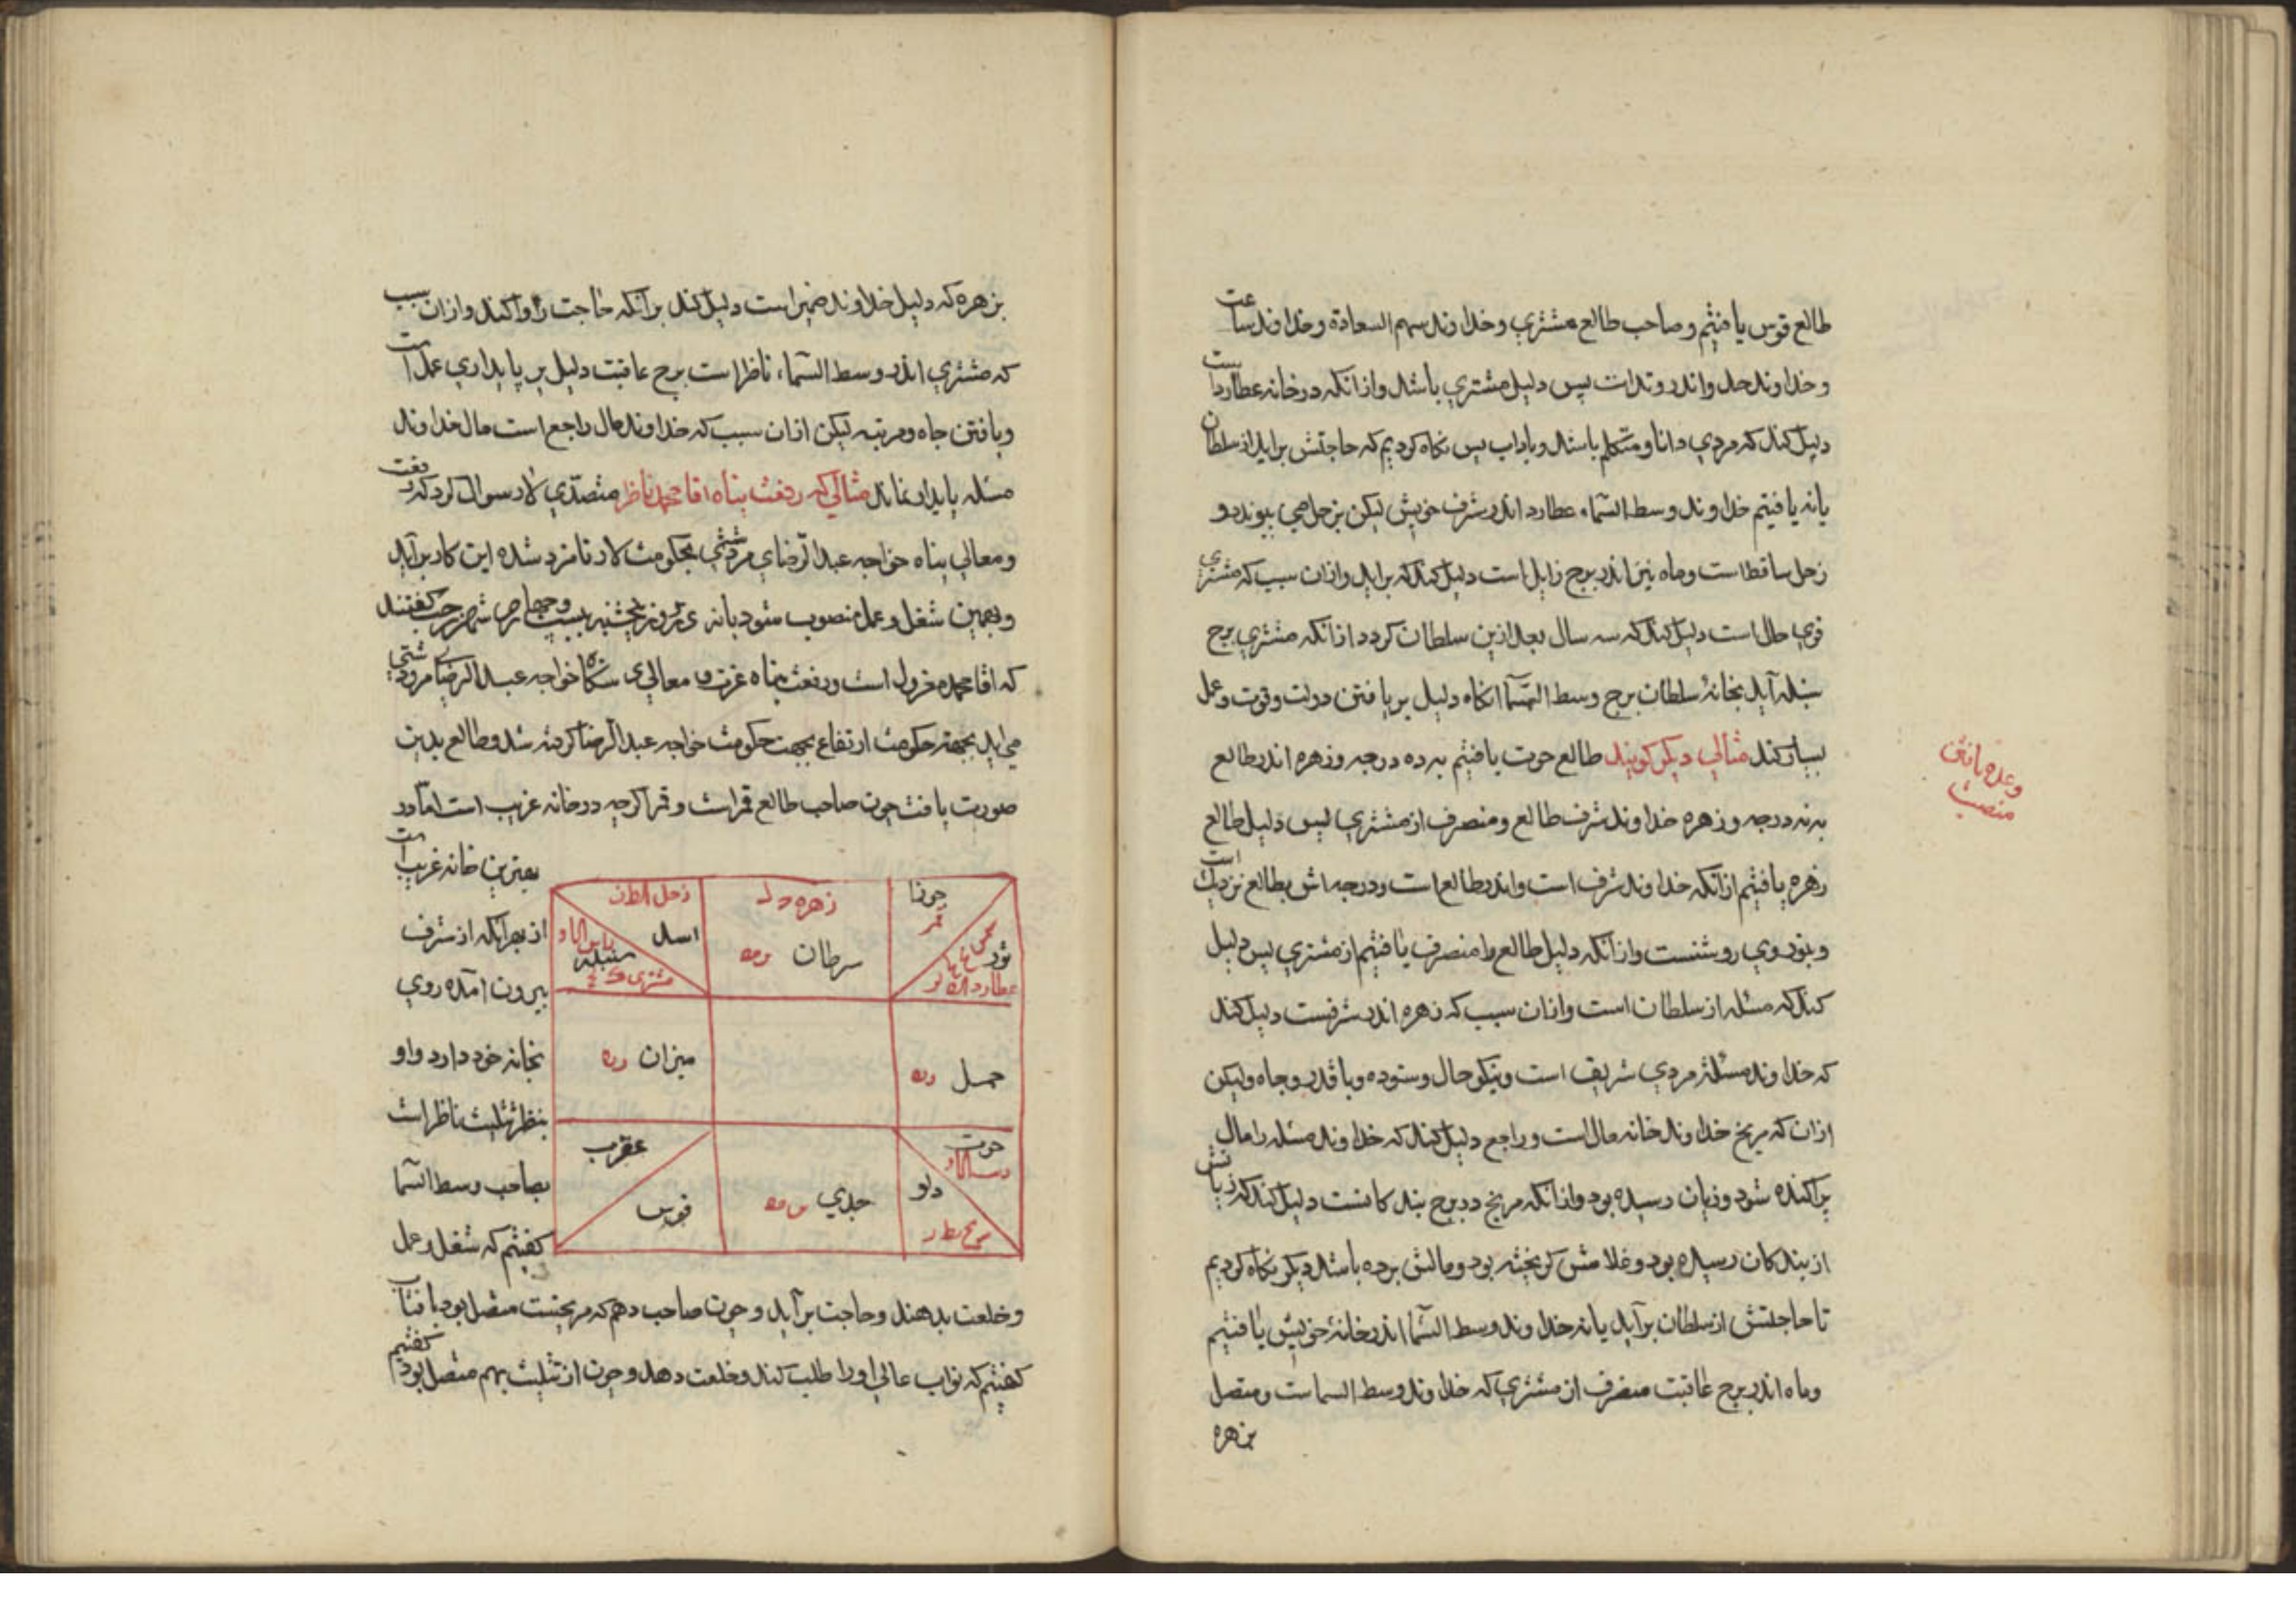 طالع قوس یافتیم و صاحب طالع مشتري و خداوند سهم السعادة و خداوند ساعت
و خداوند حد و اندر وتد است پس دلیل مشتري باشد و ازانکه در خانه عطارد است
دلیل کند که مردي دانا و متکلم باشد و باداب پس نکاه کردیم که حاجتش براید از سلطان
یا نه یافتیم خداوند وسط السماء عطارد اندر شرف خویش لیکن بزحل می پیوندد و
زحل ساقط است و ماه نیز اندر برج زایل است دلیل کند که براید و ازان سبب که مشتري
قوي حال است دلیل کند که سه سال بعد ازین سلطان کردد ازانکه مشتري برج
سنبله آید بخانه سلطان برج وسط السما انکاه دلیل بر یافتن دولت و قوت و عمل
بسیار کند مثالي دیکر کویند طالع حوت یافتیم به ده درجه و زهره اندر طالع
وعده یافتن منصب
به نه درجه و زهره خداوند شرف طالع و منصرف از مشتري پس دلیل طالع
زهره یافتیم ازانکه خداوند شرف است و اندر طالع است و درجه اش بطالع نزدیک است
و بنور وي روشنست و ازانکه دلیل طالع را منصرف یافتیم از مشتري پس دلیل
کند که مسئله از سلطان است و ازان سبب که زهره اندر شرفست دلیل کند
که خداوند مسئله مردي شریف است و نیکو حال و ستوده و با قدر و جاه ولیکن
ازان که مریخ خداوند خانه مال است و راجع دلیل کند که خداوند مسئله را مال
پراکنده شود و زیان رسیده بود و ازانکه مریخ در برج بندکانست دلیل کند که زیانش
از بندکان رسیده بود و غلامش کریخته بود و مالش برده باشد دیکر نکاه کردیم
تا حاجتش از سلطان برآید یا نه خداوند وسط السما اندر خانه خویش یافتیم
و ماه اندر برج عاقبت منصرف از مشتري که خداوند وسط السماست و متصل
بزهره
بزهره که دلیل خداوند ضمیر است دلیل کند برآنکه حاجت روا کند و ازان سبب
که مشتري اندر وسط السماء ناظر است برج عاقبت دلیل بر پایداري عمل است
و یافتن جاه و مرتبه لیکن ازان سبب که خداوند مال راجع است مال خداوند
مسئله پایدار نماند مثالي که رفعت پناه اقا محمد ناظر متصدي لار سوال کرد که رفعت
و معالي پناه خواجه عبد الرضاي مردشتي بحکومت لار نامزد شده این کار برآید
و بهمین شغل و عمل منصوب شود یا نه روز پنجشنبه بیست و چهارم شهر رجب کفتند
که اقا محمد معزول است و رفعت پناه عزت و معالي دستکاه خواجه عبد الرضاي مرودشتي
می اید بجهة حکومت ارتفاع بجهت حکومت خواجه عبد الرضا کرفته شد و طالع بدین
صورت یافت چون صاحب طالع قمر است و قمر اکرچه در خانه غریب است اما در
بهترین خانه غریب است
از بهر آنکه از شرف
بیرون آمده روي
بخانه خود دارد و او
بنظر تثلیث ناظر است
بصاحب وسط السما
کفتیم که شغل و عمل
جوزا
قمر
شمس
ثور
عطارد
زهره
سرطان
زحل
اسد
سنبله
مشتري
حمل
میزان
حوت
دلو
جدي
عقرب
قوس
و خلعت بدهند و حاجت برآید و چون صاحب دهم که مریخست متصل بود بافتاب
کفتیم که نواب عالي او را طلب کند و خلعت دهد و چون از تثلیث بهم متصل بود کفتیم